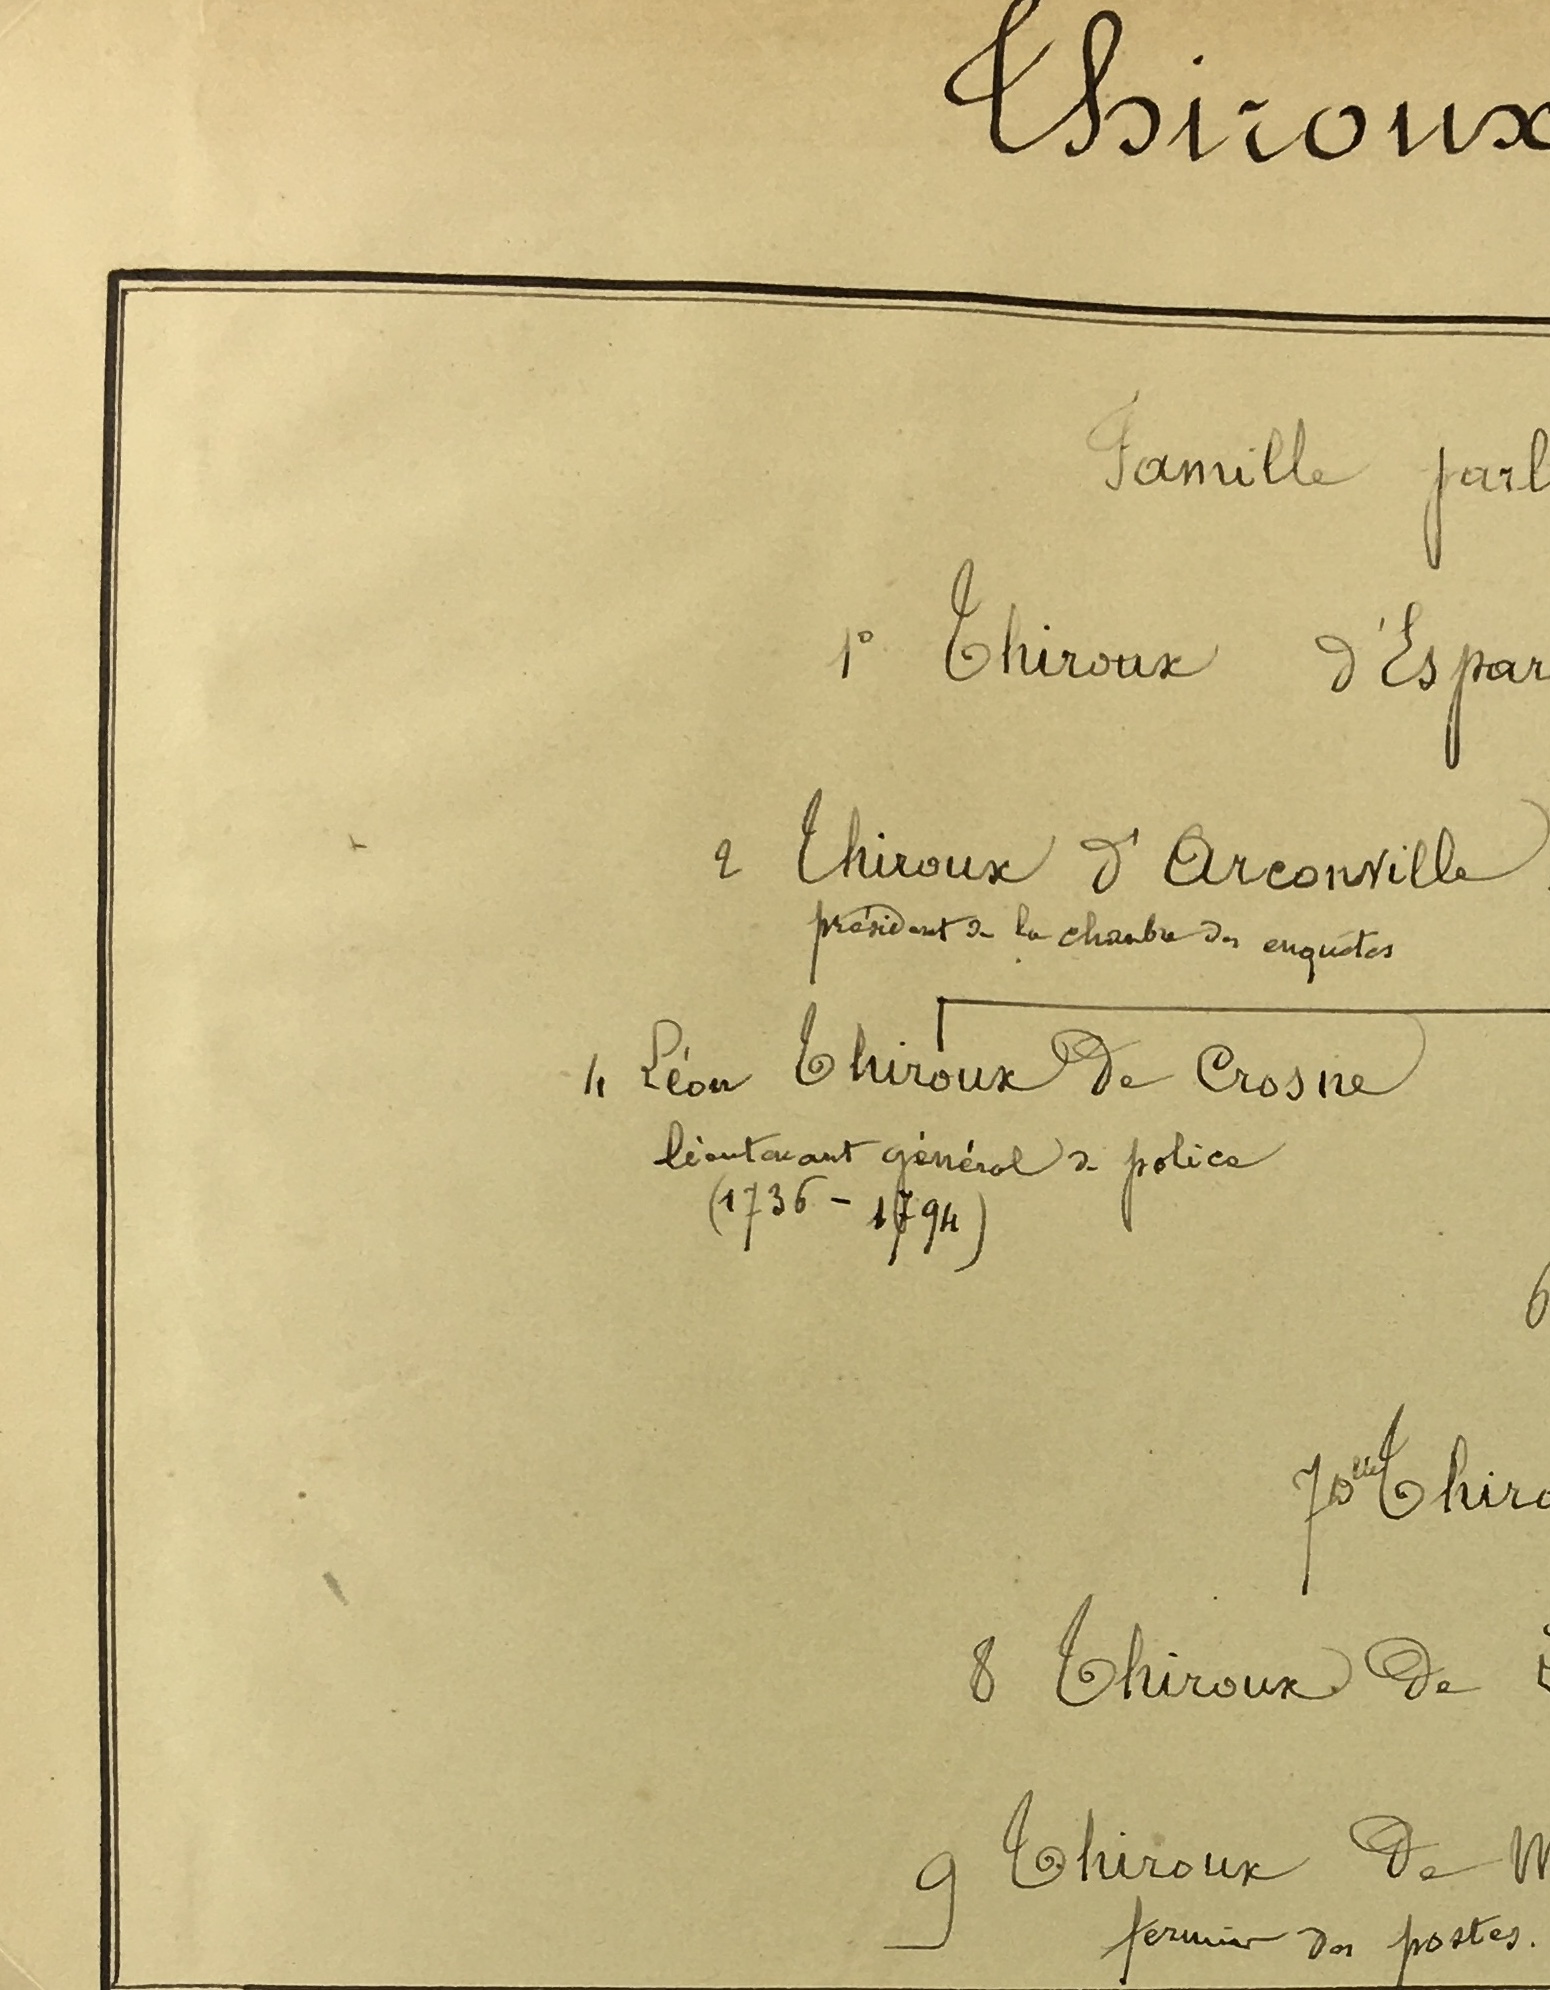 Thiroux
Famille parl
1° Thiroux d'Espar
2 Thiroux d'Arconville
président de la chambre des enquêtes
4 Léon Thiroux de Crosne
lieutenant général de police
(1736 - 1794)
6
7 Dlle Thiro
8 Thiroux de
9 Thiroux de M
fermier des postes.